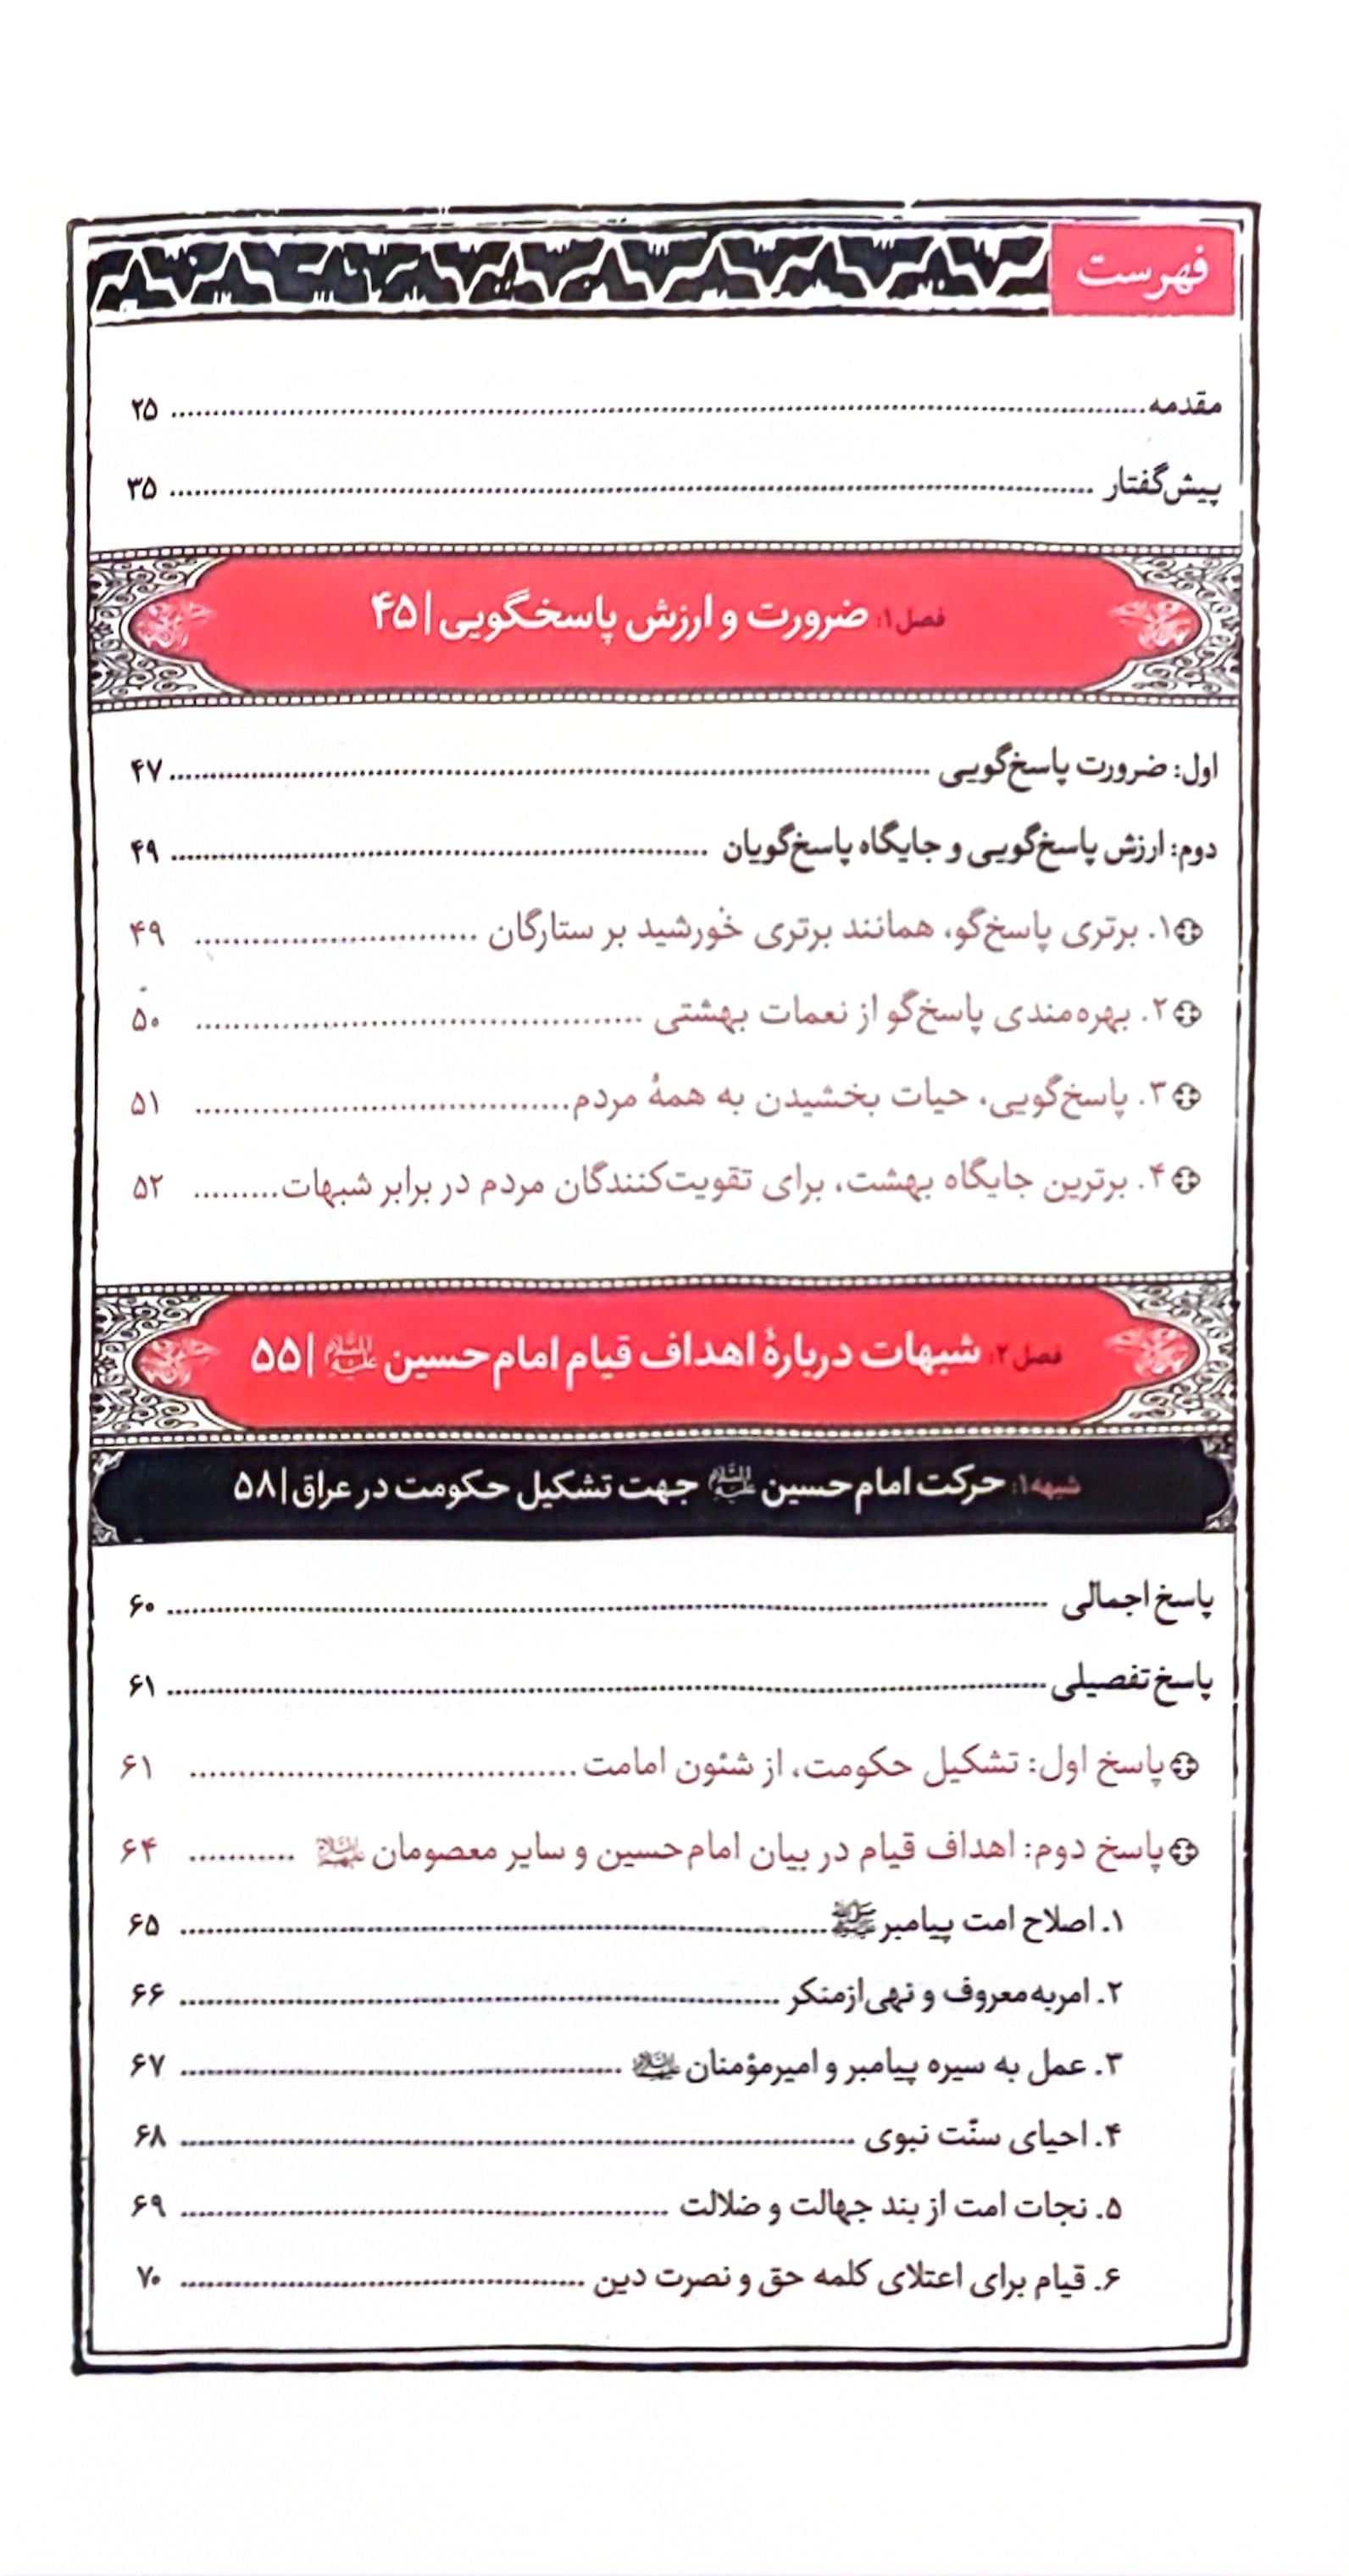 فهرست
مقدمه ........ ۲۵
پیش‌گفتار ........ ۳۵
فصل ۱: ضرورت و ارزش پاسخگویی | ۴۵
اول: ضرورت پاسخ‌گویی ........ ۴۷
دوم: ارزش پاسخ‌گویی و جایگاه پاسخ‌گویان ........ ۴۹
۱. برتری پاسخ‌گو، همانند برتری خورشید بر ستارگان ........ ۴۹
۲. بهره‌مندی پاسخ‌گو از نعمات بهشتی ........ ۵۰
۳. پاسخ‌گویی، حیات بخشیدن به همهٔ مردم ........ ۵۱
۴. برترین جایگاه بهشت، برای تقویت‌کنندگان مردم در برابر شبهات ........ ۵۲
فصل ۲: شبهات دربارهٔ اهداف قیام امام حسین علیه‌السلام | ۵۵
شبهه ۱: حرکت امام حسین علیه‌السلام جهت تشکیل حکومت در عراق | ۵۸
پاسخ اجمالی ........ ۶۰
پاسخ تفصیلی ........ ۶۱
پاسخ اول: تشکیل حکومت، از شئون امامت ........ ۶۱
پاسخ دوم: اهداف قیام در بیان امام حسین و سایر معصومان علیهم‌السلام ........ ۶۴
۱. اصلاح امت پیامبر ﷺ ........ ۶۵
۲. امربه‌معروف و نهی‌ازمنکر ........ ۶۶
۳. عمل به سیره پیامبر و امیرمؤمنان ........ ۶۷
۴. احیای سنّت نبوی ........ ۶۸
۵. نجات امت از بند جهالت و ضلالت ........ ۶۹
۶. قیام برای اعتلای کلمه حق و نصرت دین ........ ۷۰